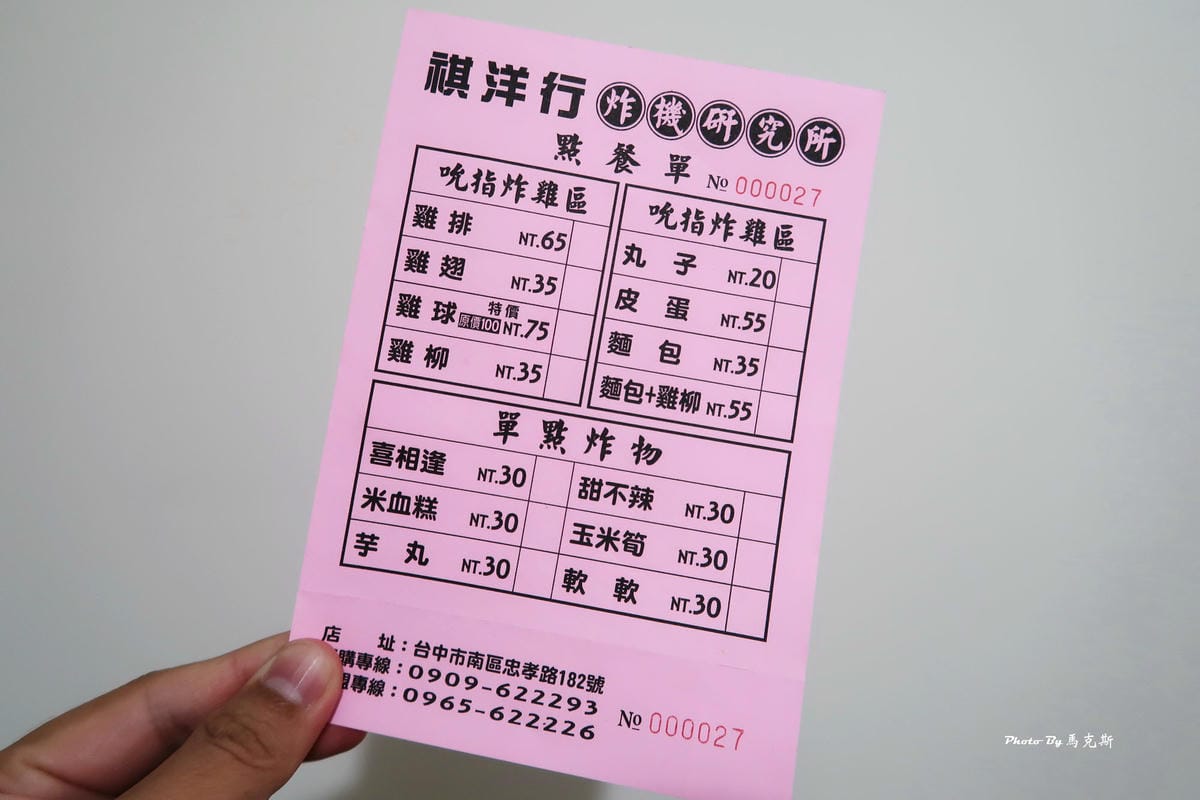 祺洋行 炸機研究所
點餐單 № 000027
吮指炸雞區
雞排 NT.65
雞翅 NT.35
雞球 原價100 特價 NT.75
雞柳 NT.35
吮指炸雞區
丸子 NT.20
皮蛋 NT.55
麵包 NT.35
麵包+雞柳 NT.55
單點炸物
喜相逢 NT.30 甜不辣 NT.30
米血糕 NT.30 玉米筍 NT.30
芋丸 NT.30 軟軟 NT.30
店址：台中市南區忠孝路182號
購專線：0909-622293
盟專線：0965-622226
№ 000027
Photo By 馬克斯